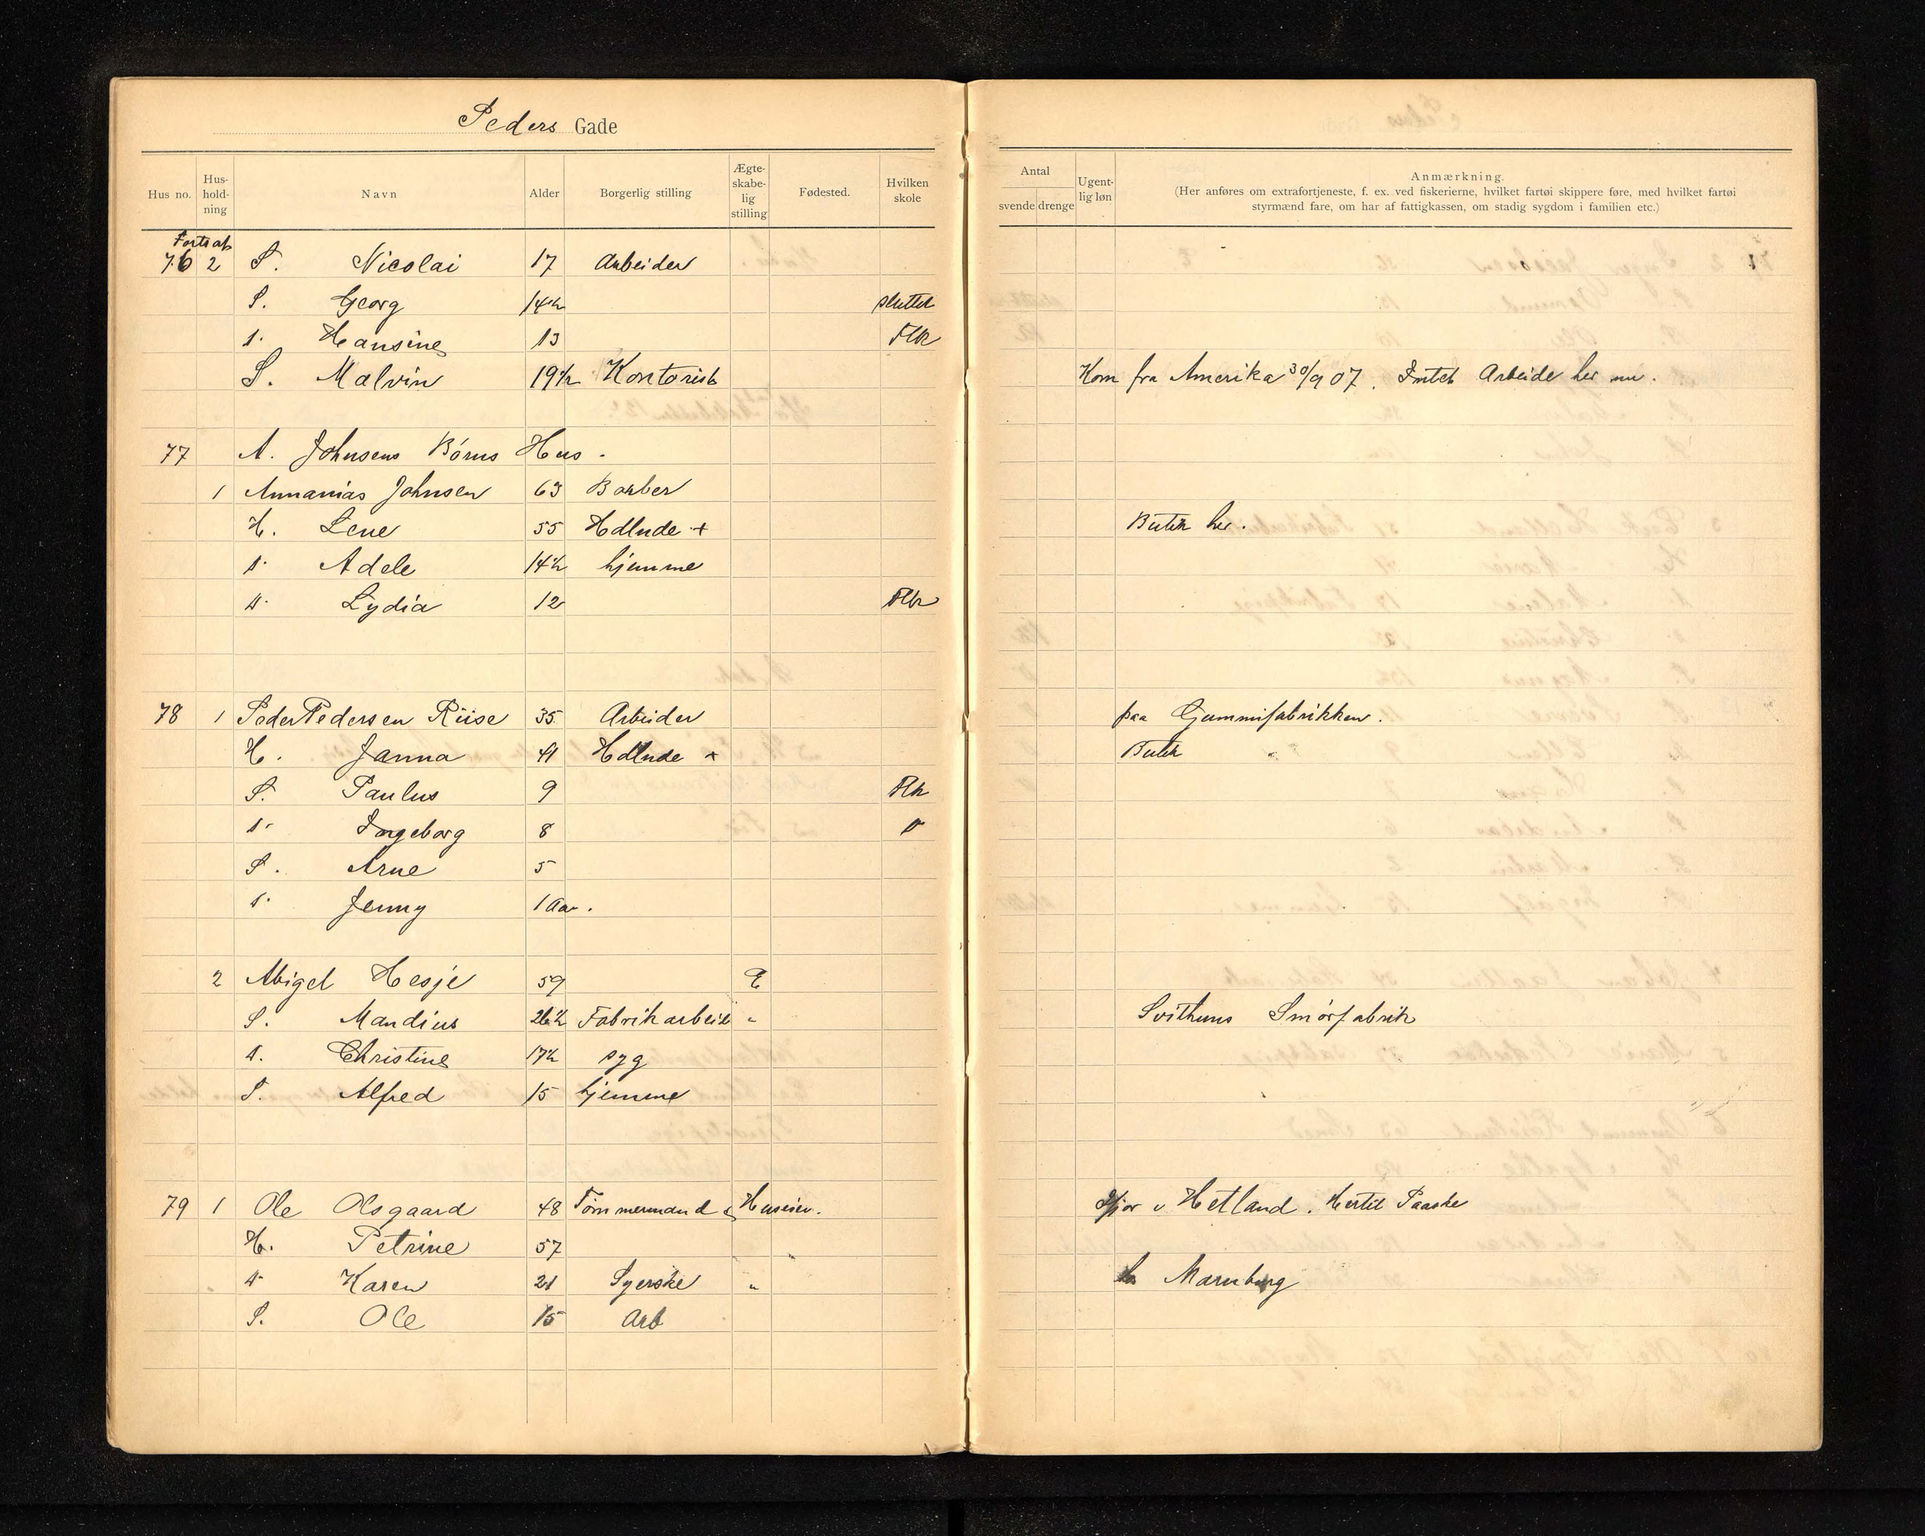 Peders Gade
Hus no. Hus-hold-ning Navn Alder Borgerlig stilling Ægte-skabe-lig stilling Fødested. Hvilken skole
Antal svende drenge Ugent-lig løn Anmærkning.
(Her anføres om extrafortjeneste, f. ex. ved fiskerierne, hvilket fartøi skippere føre, med hvilket fartøi
styrmænd fare, om har af fattigkassen, om stadig sygdom i familien etc.)
Fortsat
76 2 S. Nicolai 17 Arbeider
S. Georg 14½ sluttet
D. Hansine 13 Flk
S. Malvin 19½ Kontorist Kom fra Amerika 30/9 07. Intet Arbeide her nu.
77 A. Johnsens Børns Hus.
1 Annanias Johnsen 63 Barber
H. Lene 55 Hdlnde + Butik her.
D. Adele 14½ hjemme
D. Lydia 12 Flk
78 1 Peder Pedersen Riise 35 Arbeider paa Gummifabrikken.
H. Janna 41 Hdlnde + Butik "
S. Paulus 9 Flk
D. Ingeborg 8 D
S. Arne 5
D. Jenny 1 Aar.
2 Abigel Hesje 59 E
S. Mandius 26½ Fabrikarbeid " Svithuns Smørfabrik
D. Christine 17½ syg
S. Alfred 15 hjemme
79 1 Ole Olsgaard 48 Tømmermand & Huseier. Ifjor i Hetland. Hertil Paaske
H. Petrine 57
D. Karen 21 Syerske " Marnburg
S. Ole 15 Arb